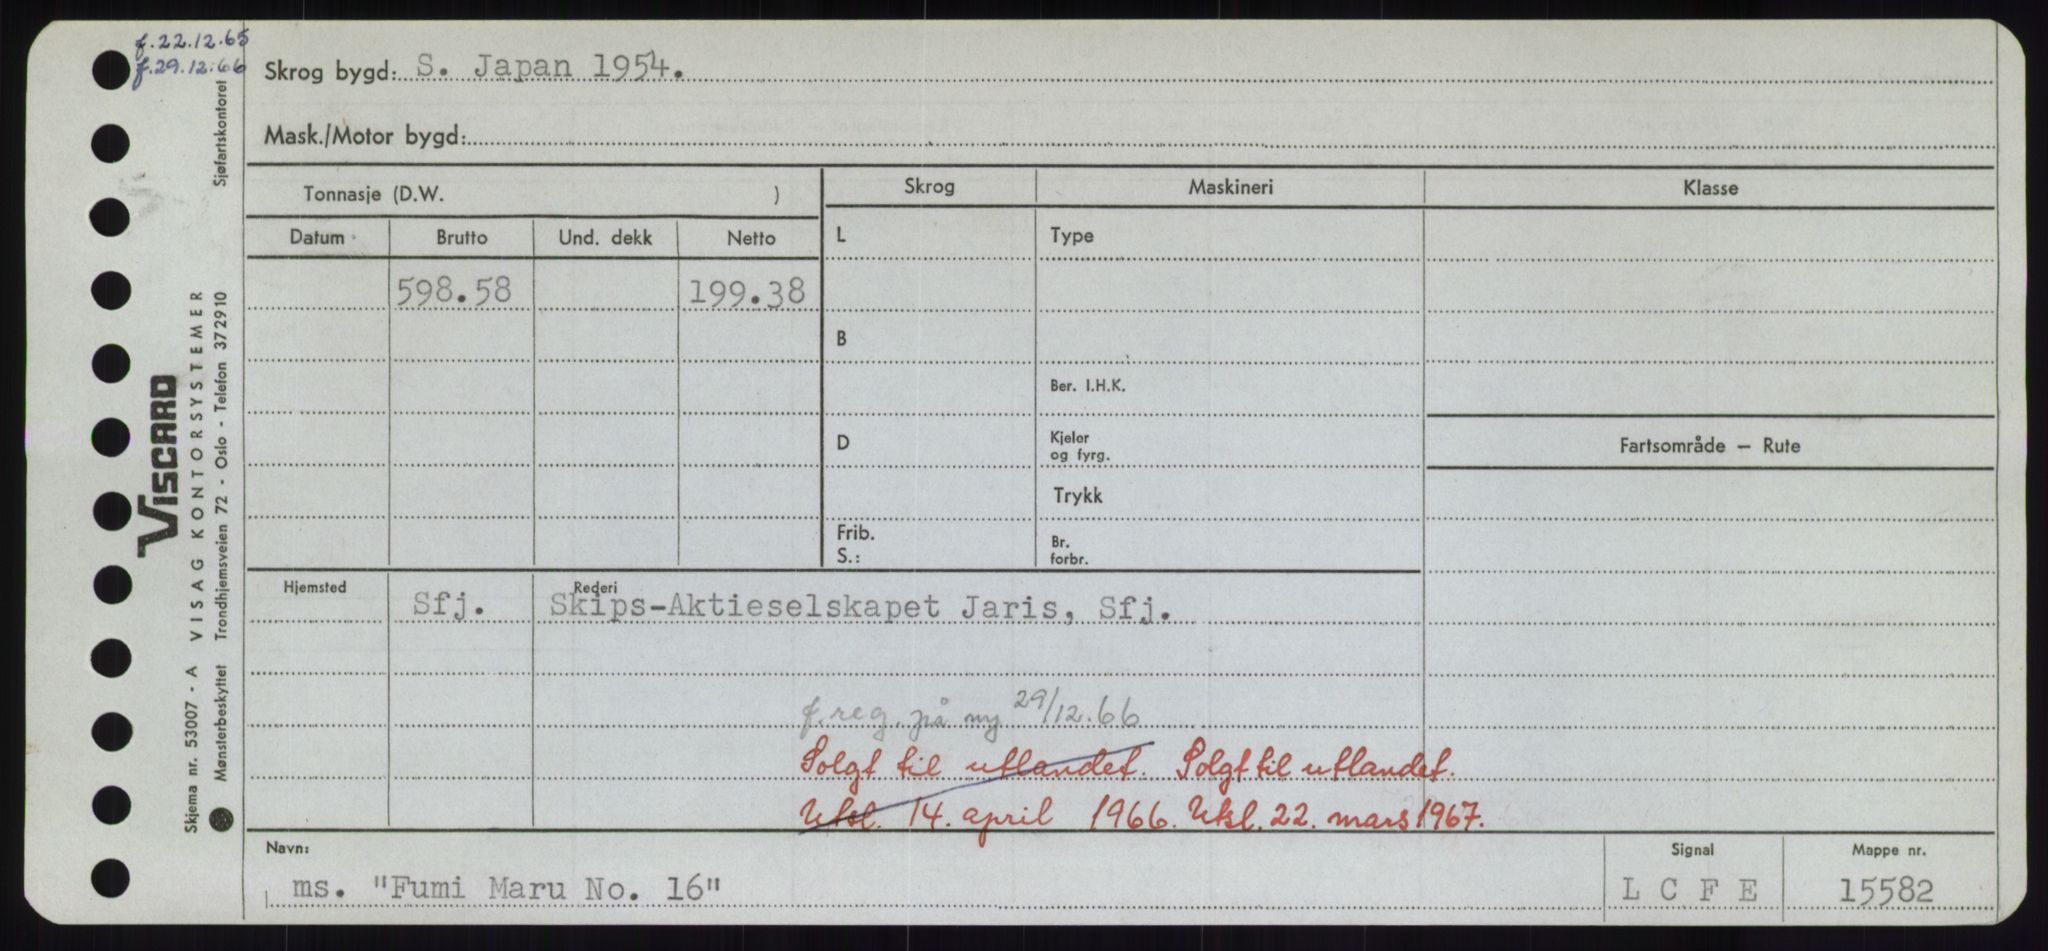 f.22.12.65
f.29.12.66
Skrog bygd: S. Japan 1954.
Mask./Motor bygd:
Tonnasje (D.W. )
Skrog
Maskineri
Klasse
Datum
Brutto
Und. dekk
Netto
L
Type
598.58
199.38
B
Ber. I.H.K.
D
Kjeler
og fyrg.
Fartsområde — Rute
Trykk
Frib.
S.:
Br.
forbr.
Hjemsted
Sfj.
Rederi
Skips-Aktieselskapet Jaris, Sfj.
f.reg. på ny 29/12.66
Solgt til utlandet. Solgt til utlandet.
Utsl. 14. april 1966. Utsl. 22. mars 1967.
Navn:
ms. "Fumi Maru No. 16"
Signal
L C F E
Mappe nr.
15582
VISCARD
Skjema nr. 53007 - A VISAG KONTORSYSTEMER
Mønsterbeskyttet Trondhjemsveien 72 - Oslo - Telefon 372910 Sjøfartskontoret